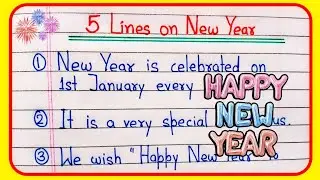 5 Lines on New Year
① New Year is celebrated on
1st January every
② It is a very special us.
③ We wish "Happy New Year"
HAPPY
NEW
YEAR